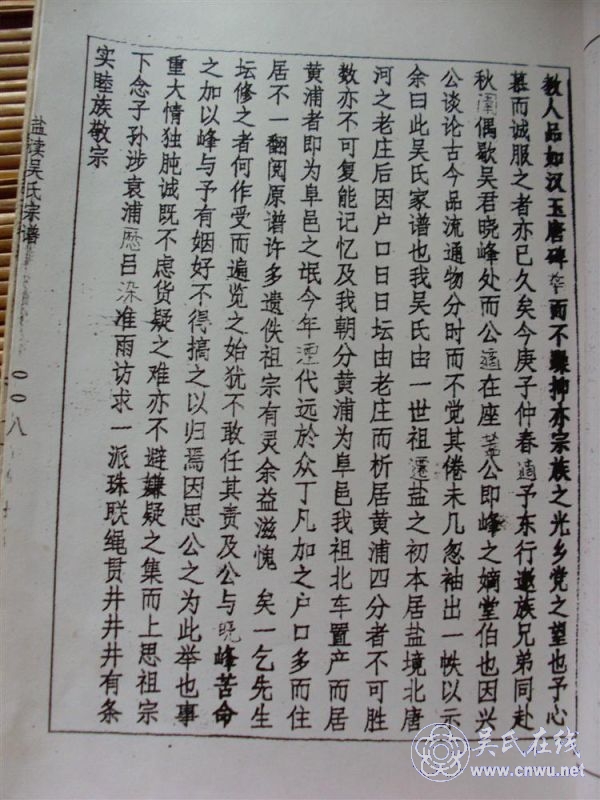 教人品如汉玉唐碑而不躁抑亦宗族之光乡党之望也予心
慕而诚服之者亦已久矣今庚子仲春适予东行邀族兄弟同赴
秋圃偶歌吴君晓峰处而公适在座盖公即峰之嫡堂伯也因兴
公谈论古今品流通物分时而不觉其倦未几忽袖出一帙以示
余曰此吴氏家谱也我吴氏由一世祖迁盐之初本居盐境北唐
河之老庄后因户口日日坛由老庄而析居黄浦四分者不可胜
数亦不可复能记忆及我朝分黄浦为阜邑我祖北车置产而居
黄浦者即为阜邑之氓今年湮代远於众丁凡加之户口多而住
居不一翻阅原谱许多遗佚祖宗有灵余益滋愧矣一乞先生
坛修之者何作受而遍览之始犹不敢任其责及公与晓峰苦命
之加以峰与予有姻好不得搞之以归焉因思公之为此举也事
重大情独肫诚既不虑货疑之难亦不避嫌疑之集而上思祖宗
下念子孙涉袁浦历吕梁准雨访求一派珠联绳贯井井井有条
实睦族敬宗
盐渎吴氏宗谱
００八
吴氏在线
www.cnwu.net